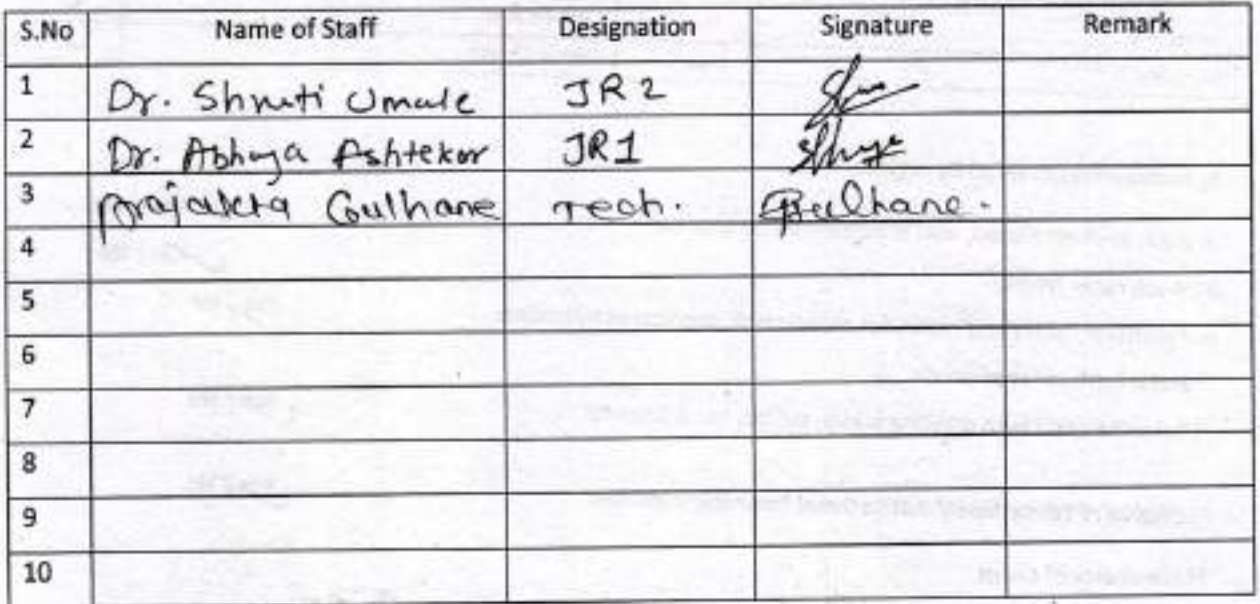 S.No Name of Staff Designation Signature Remark
1 Dr. Shruti Umale JR2
2 Dr. Abhaya Ashtekar JR1
3 Prajakta Gulhane Tech. Gulhane.
4
5
6
7
8
9
10